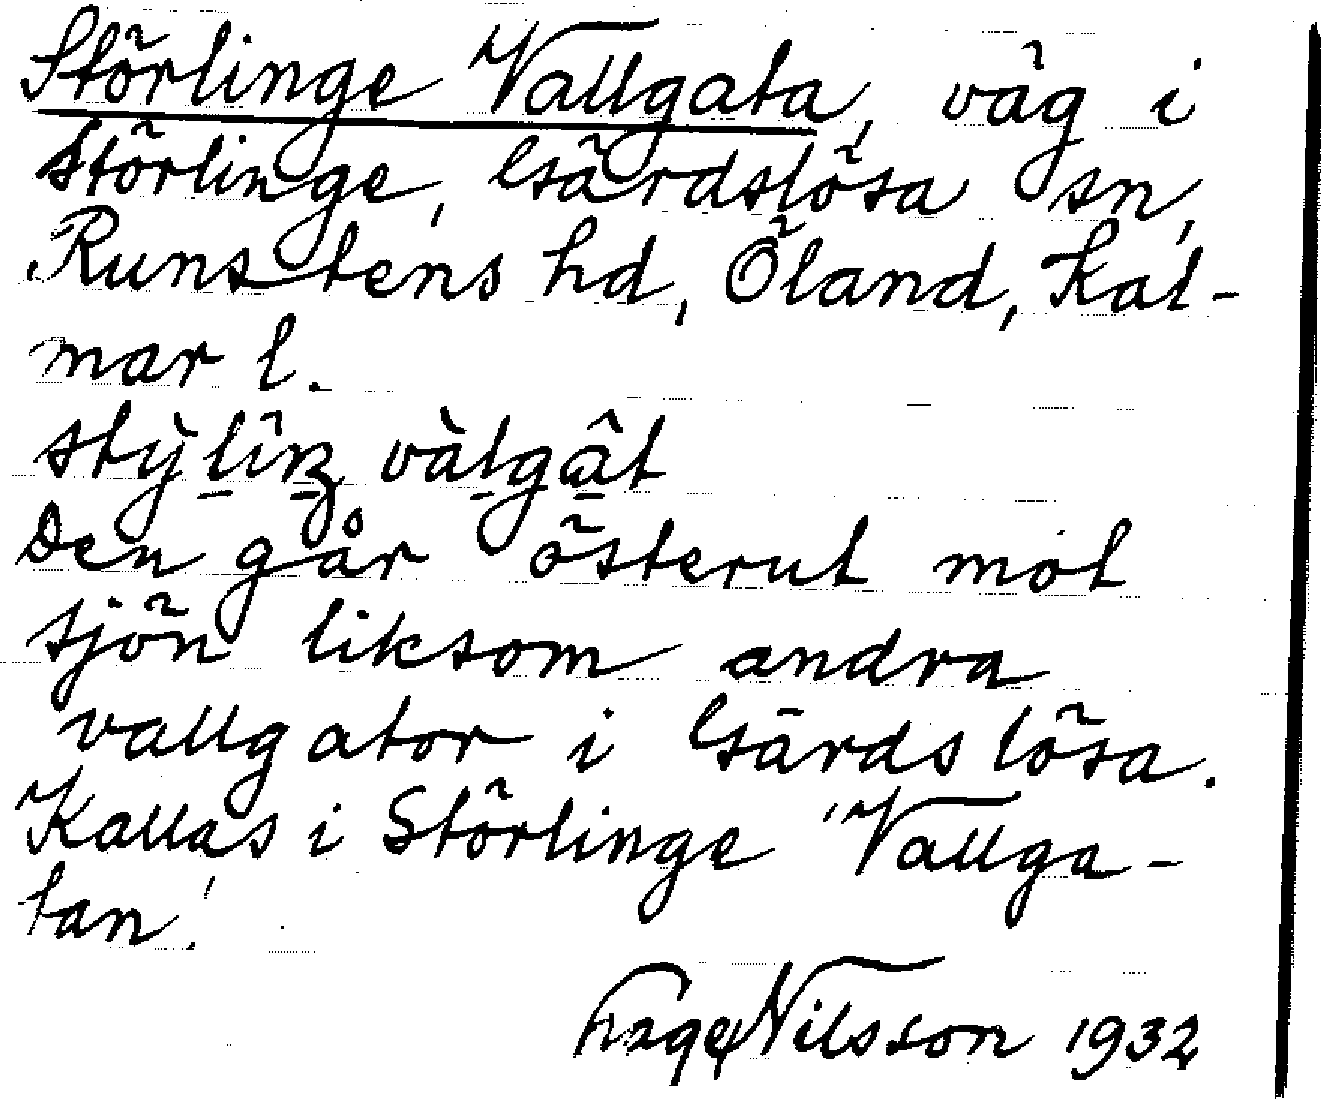 Störlinge Vallgata, väg i
Störlinge, Gärdslösa sn,
Runstens hd, Öland, Kal-
mar l.
Den går österut mot
sjön liksom andra
vallgator i Gärdslösa.
Kallas i Störlinge 'Vallga-
tan'.
Nilsson 1932